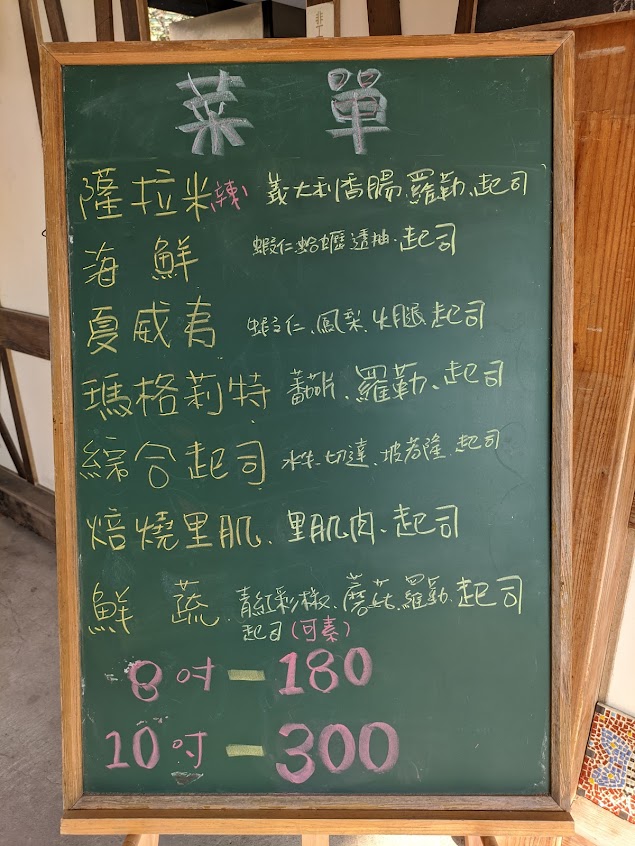 菜單
薩拉米(辣) 義大利香腸、羅勒、起司
海鮮 蝦仁、蛤蠣、透抽、起司
夏威夷 蝦仁、鳳梨、火腿、起司
瑪格莉特 蕃茄片、羅勒、起司
綜合起司 水牛、切達、坡芳隆、起司
焙燒里肌、里肌肉、起司
鮮蔬、青紅彩椒、蘑菇、羅勒、起司
起司(可素)
8吋-180
10吋-300